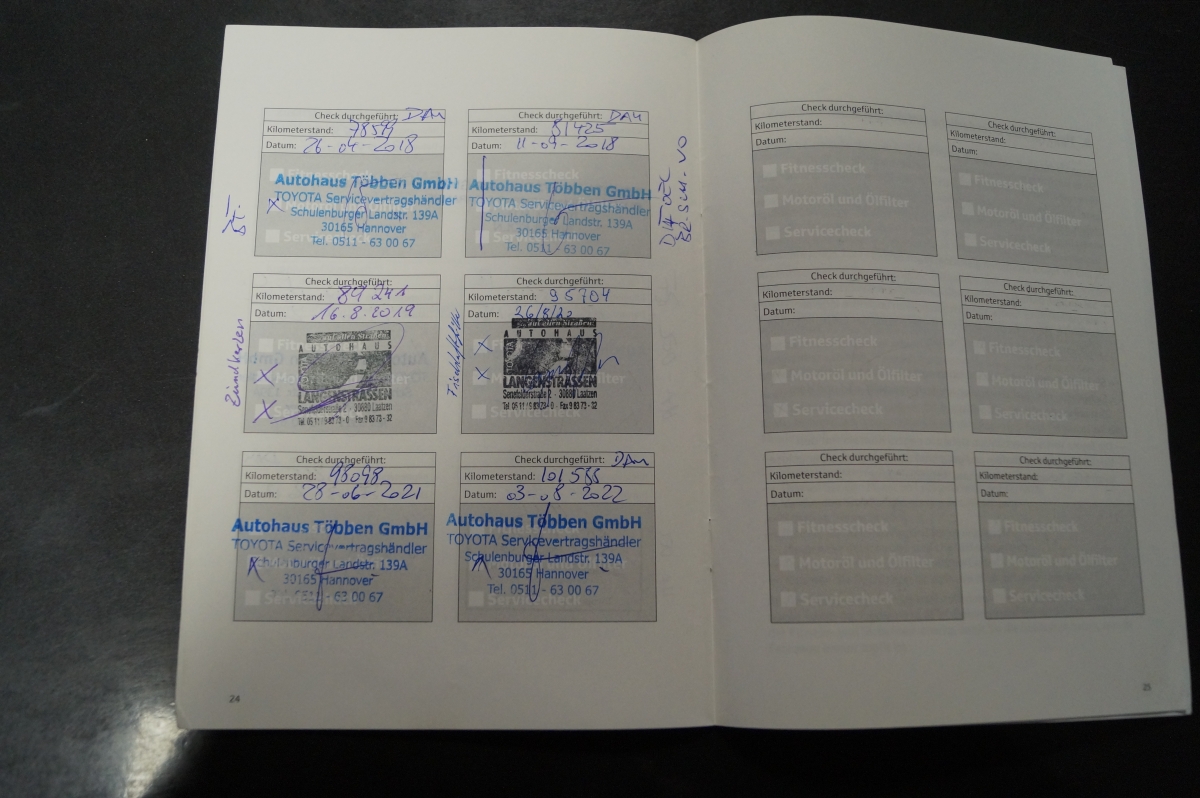 Check durchgeführt: DAM
Kilometerstand: 78599
Datum: 26-04-2018
Fitnesscheck
Autohaus Többen GmbH
TOYOTA Servicevertragshändler
Schulenburger Landstr. 139A
30165 Hannover
Tel. 0511 - 63 00 67
Check durchgeführt: DAM
Kilometerstand: 81425
Datum: 11-09-2018
Fitnesscheck
Autohaus Többen GmbH
TOYOTA Servicevertragshändler
Schulenburger Landstr. 139A
30165 Hannover
Tel. 0511 - 63 00 67
Check durchgeführt:
Kilometerstand: 89 241
Datum: 16.8.2019
Zündkerzen
auf allen Straßen.
AUTOHAUS
LANGENSTRASSEN
Senefelderstraße 2 - 30880 Laatzen
Tel. 05 11 / 9 83 73 - 0 Fax 9 83 73 - 32
Check durchgeführt:
Kilometerstand: 95704
Datum: 26/8/20
auf allen Straßen.
AUTOHAUS
TOYOTA
LANGENSTRASSEN
Senefelderstraße 2 - 30880 Laatzen
Tel. 05 11 / 9 83 73 - 0 Fax 9 83 73 - 32
Check durchgeführt:
Kilometerstand: 98098
Datum: 28-06-2021
Autohaus Többen GmbH
TOYOTA Servicevertragshändler
Schulenburger Landstr. 139A
30165 Hannover
Tel. 0511 - 63 00 67
Servicecheck
Check durchgeführt: DAM
Kilometerstand: 101585
Datum: 03-08-2022
Autohaus Többen GmbH
TOYOTA Servicevertragshändler
Schulenburger Landstr. 139A
30165 Hannover
Tel. 0511 - 63 00 67
Servicecheck
24
Check durchgeführt:
Kilometerstand:
Datum:
Fitnesscheck
Motoröl und Ölfilter
Servicecheck
Check durchgeführt:
Kilometerstand:
Datum:
Fitnesscheck
Motoröl und Ölfilter
Servicecheck
Check durchgeführt:
Kilometerstand:
Datum:
Fitnesscheck
Motoröl und Ölfilter
Servicecheck
Check durchgeführt:
Kilometerstand:
Datum:
Fitnesscheck
Motoröl und Ölfilter
Servicecheck
Check durchgeführt:
Kilometerstand:
Datum:
Fitnesscheck
Motoröl und Ölfilter
Servicecheck
Check durchgeführt:
Kilometerstand:
Datum:
Fitnesscheck
Motoröl und Ölfilter
Servicecheck
25